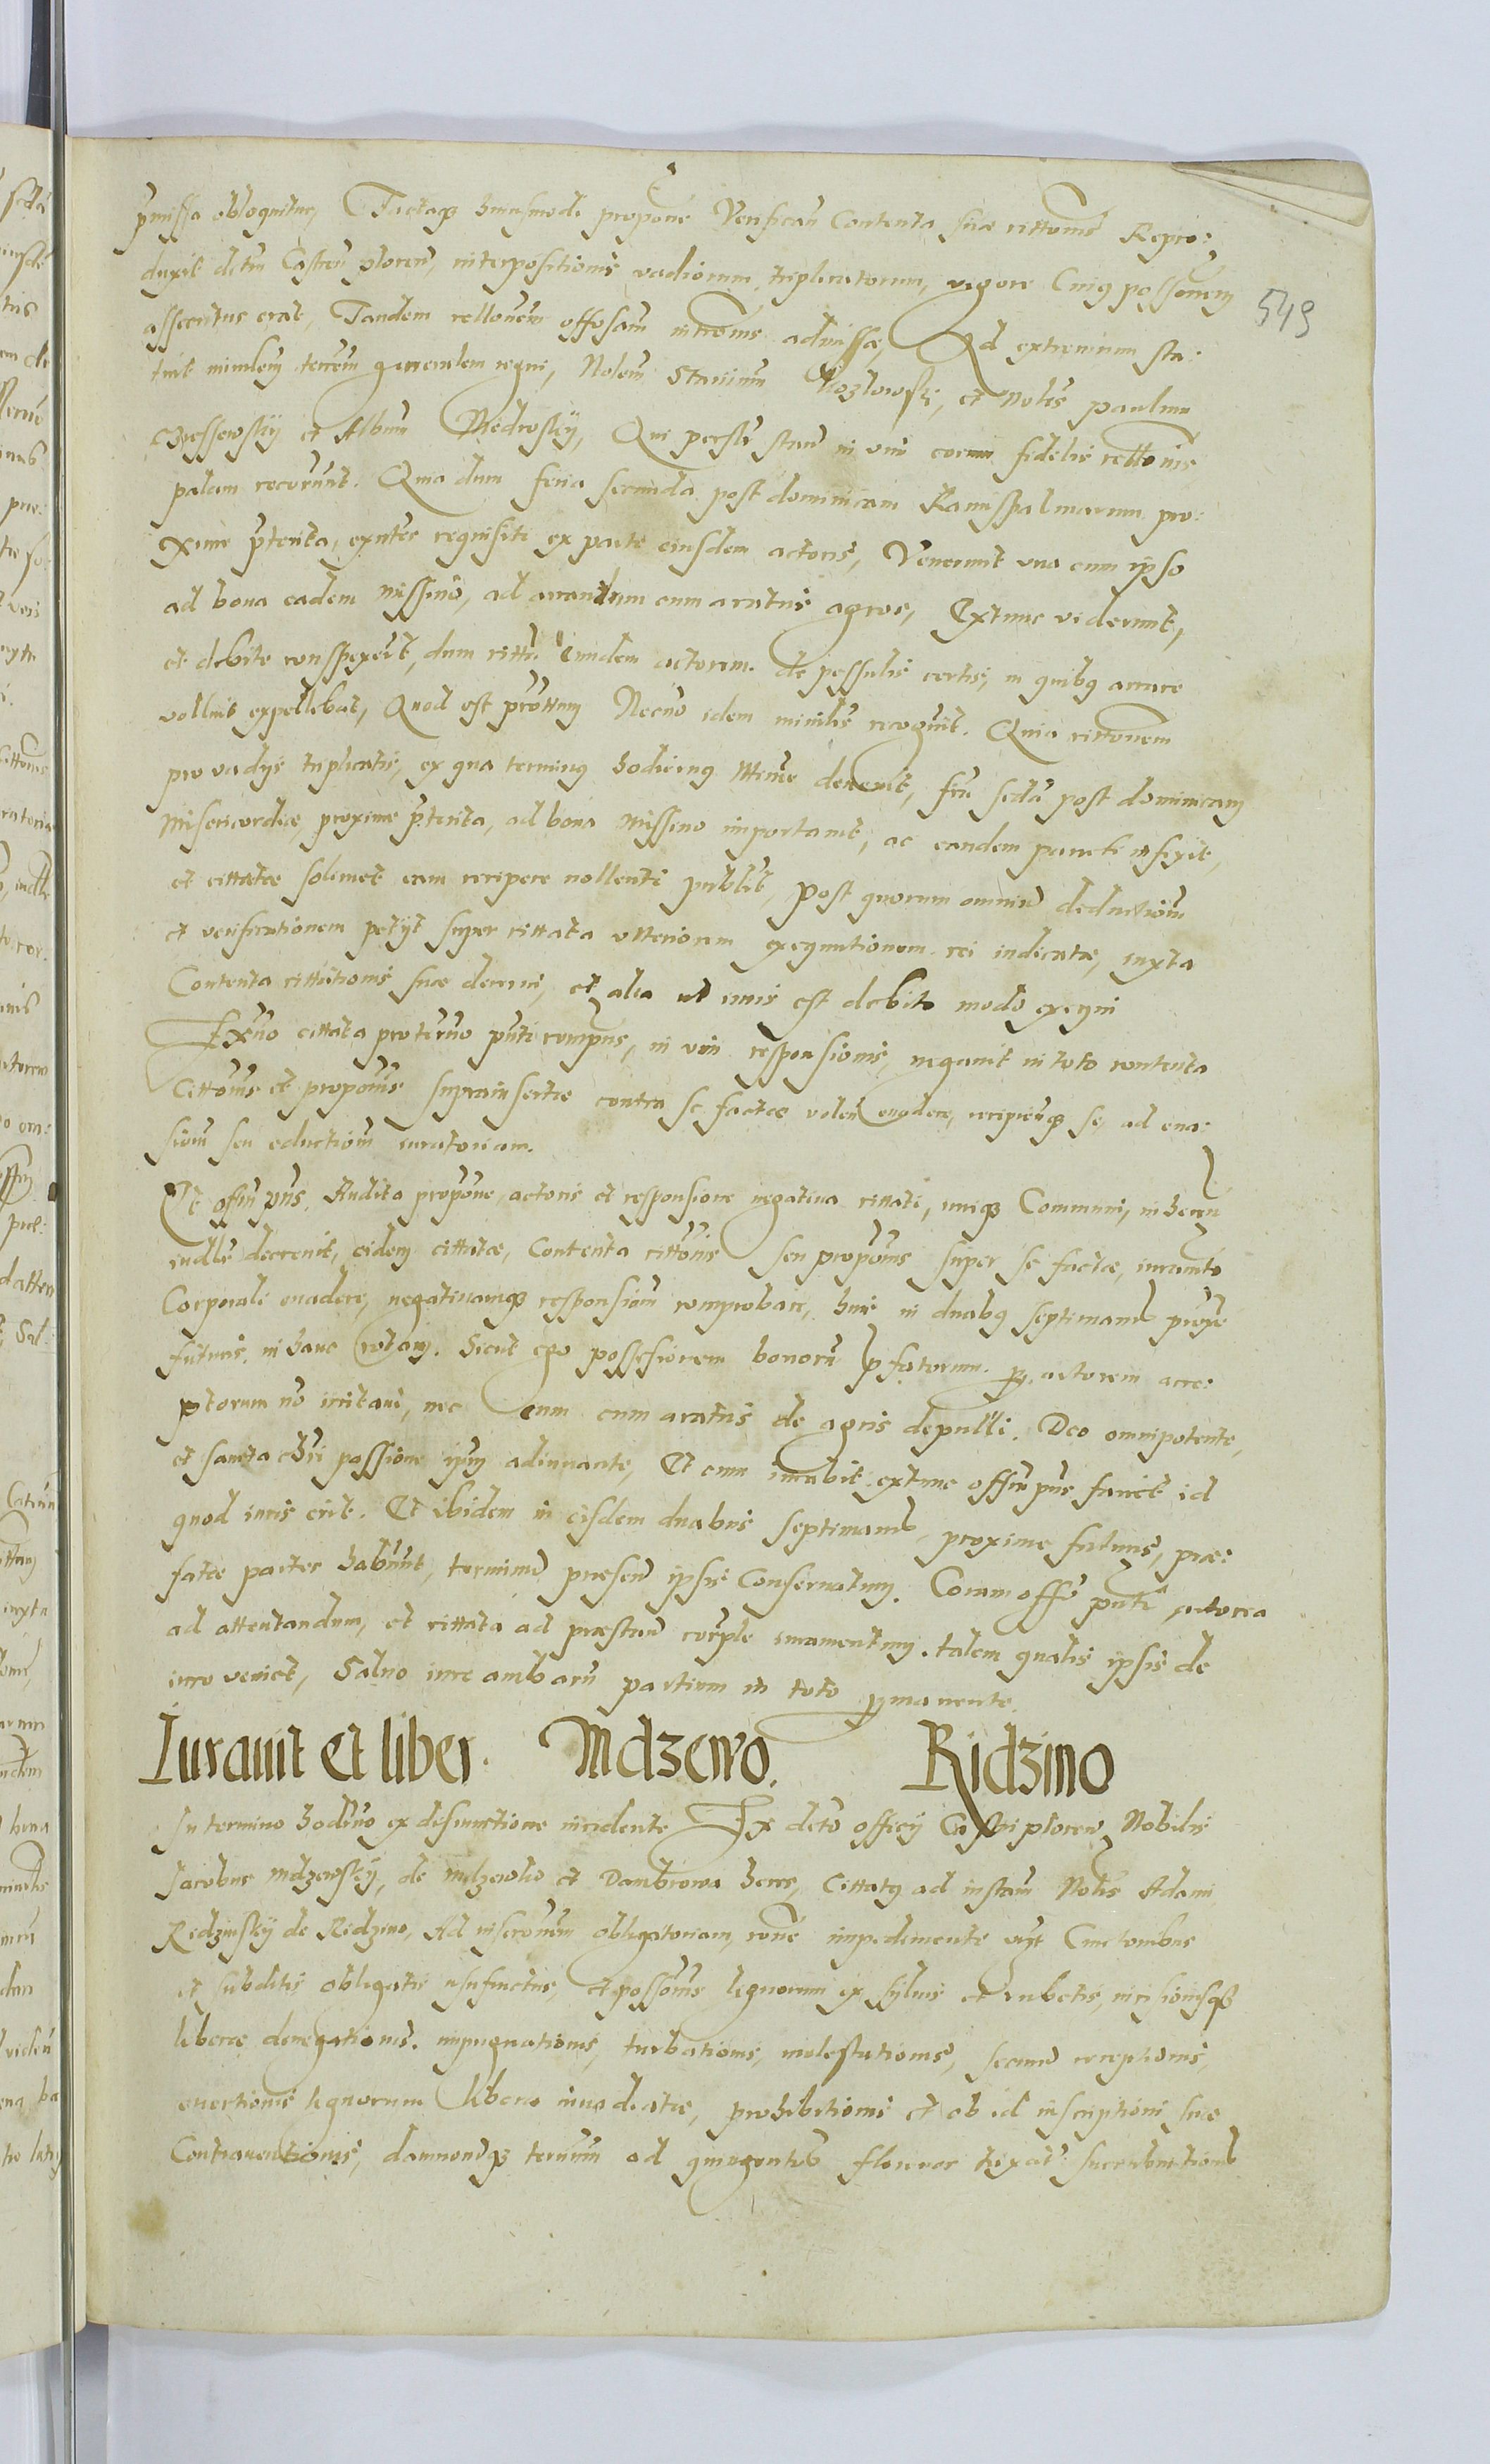 pmissa obloquitur, Tactaq huiusmodi propone Verifican Contenta suæ cittonis Repro:
duxit detm Castren ploren, interpositionis vadiorum triplicatorum, vigore Cuius possonem
assecutus erat, Tandem rellonem offosam intromis admissæ, Ad extremum sta:
tuit minlem terrem gnrenlem regni, Nolem Staninm Kozlowski, et Nobis paulum
et Album Miedwsky, Qui persr stan in vim eorum fidelis rettonis
palam recorunt. Quia dum feria secunda post dominicam Ramispalmarum pro:
xime pterita, exntes requisiti ex parte eiusdem actoris, Venerunt una cum ipso
ad bona eadem Missino, ad arrandum cum aratris agros, Extunc viderunt,
et debite conspexert, dum citta eundem actorem de possulis certis, in quibus arrare
volluit expellebat, Quod est prottum Necno idem minlis recogvit. Quia cittonem
pro vadys triplicatis, ex qua terminus hodiernus Minre devenit, fria scda post dominicam
Misericordiæ, proxime pterita, ad bona Missino importavit, ac eandem parieti infixit,
et cittatæ solimet eam recipere nollenti publit, Post quorum omniu deductiom
et verificationem petyt super cittata ulteriorem exequutionem rei iudicatæ, iuxta
Contenta cittationis suæ decerni, et alia ut iuris est debito modo exequi
Exnvo cittata pro terno pnti compns, in vim responsionis, negavit in toto contenta
Cittonis et proponis suprainsertæ contra se factæ volen evadere, recipienq se, ad eva:
siom seu eductiom iuratoriam.
Et offm pns. Audita propone, actoris et responsione negativa cittati, iuriq Communi, inheren
iudle decrevit, eidem cittatæ, Contenta cittonis seu proponis super se factæ, iuramto
Corporali evadere, negativamq responsiom comprobare, hinc in duabus septimanis proxe
futuris, in hanc rotam. Sicut ego possesionem bonoru pfatorum p actorem acce:
ptorum no irritavi, nec eum cum aratris de agris depulli. Deo omnipotente,
et sancta Chri passione ipm adiuvante, Et cum iurabit extunc offm pns faciet id
quod iuris erit. Et ibidem in eisdem duabus septimanis, proxime futuris, præ:
fatæ partes habunt, terminu præsen ipsis Conservatum. Coram offo pnti actorea
ad attentandum, et cittata ad præstan corple iuramentum. talem qualis ipsis de
iure veniet, Salvo iure ambaru partium in toto pmanente.
Iuravit et liber. Mdzewo. Ridzino
In termino hodrno ex disiunctione incidente Ex deto officy Castri ploren Nobilis
Jacobus Mdzewsky, de Mdzewko et Dambrowa heres, Cittatus ad instam Nobis Adami
Ridzinsky de Ridzino, Ad inscronem obligatoriam, rone impedimente Cmetonibus
et subditis obligatis usufructus, et possonis lignorum ex sylvis et rubetis, incisionisq
liberæ denegationis. impugnationis, turbationis, molestationis, secun receptionis
evectionis lignorum libero invadiatæ, prohibitionis et ob id inscriptioni suæ
Contraventionis, damnorumq terrum ad quingentis florenos taxat succubutionis
549